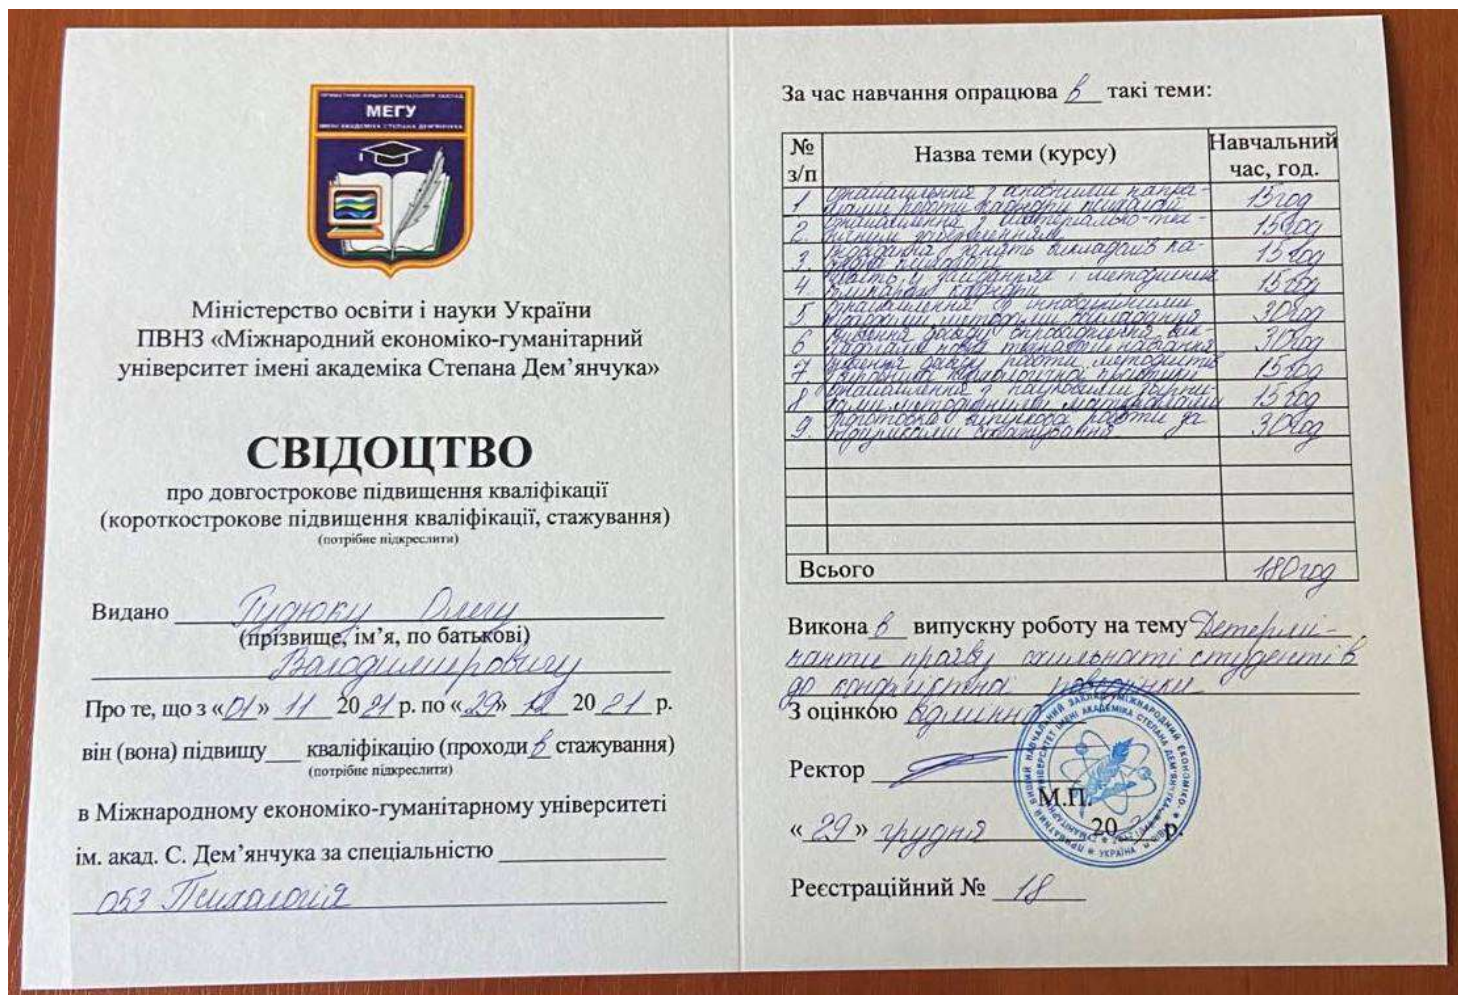 ПРИВАТНИЙ ВИЩИЙ НАВЧАЛЬНИЙ ЗАКЛАД
МЕГУ
ІМЕНІ АКАДЕМІКА СТЕПАНА ДЕМ'ЯНЧУКА
Міністерство освіти і науки України
ПВНЗ «Міжнародний економіко-гуманітарний
університет імені академіка Степана Дем’янчука»
СВІДОЦТВО
про довгострокове підвищення кваліфікації
(короткострокове підвищення кваліфікації, стажування)
(потрібне підкреслити)
Видано Гудюку Олегу
(прізвище, ім’я, по батькові)
Володимировичу
Про те, що з «01» 11 2021 р. по «29» 12 2021 р.
він (вона) підвищу___ кваліфікацію (проходив стажування)
(потрібне підкреслити)
в Міжнародному економіко-гуманітарному університеті
ім. акад. С. Дем’янчука за спеціальністю
053 Психологія
За час навчання опрацював такі теми:
№ з/п Назва теми (курсу) Навчальний час, год.
1. Ознайомлення з основними напрямами роботи кафедри психології 15 год
2. Ознайомлення з матеріально-технічним забезпеченням 15 год
3. занять викладачів кафедри 15 год
4. і методичними кафедри 15 год
5 Ознайомлення з інноваційними методами викладання 30 год
6 Вивчення досвіду навчання 30 год
7. Вивчення досвіду роботи практики 15 год
8 Ознайомлення з науковими методичними матеріалами 15 год
9. Підготовка випускової роботи за стажування 30 год
Всього 180 год
Виконав випускну роботу на тему Детермі-
нанти прояву схильності студентів
до конфліктної поведінки
З оцінкою відмінно
Ректор
М.П.
«29» грудня 20 р.
Реєстраційний № 18